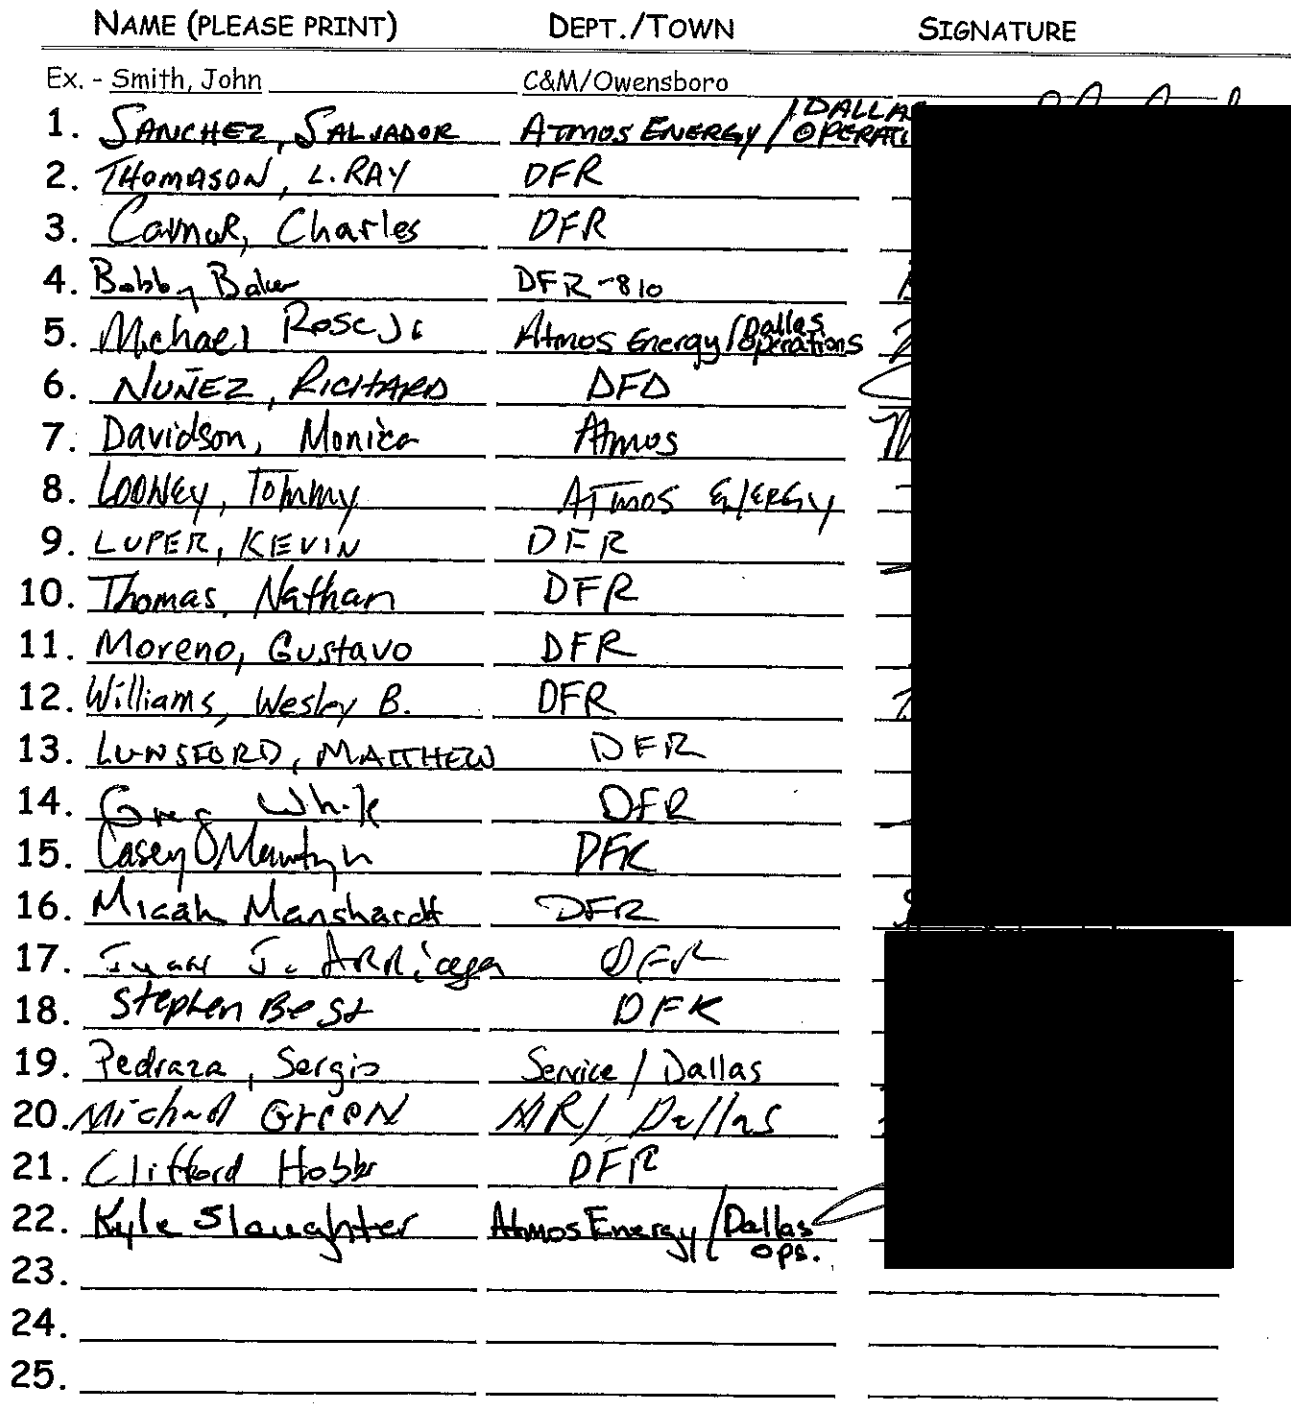 NAME (PLEASE PRINT) DEPT./TOWN SIGNATURE
Ex. - Smith, John C&M/Owensboro
1. SANCHEZ, SALVADOR ATMOS ENERGY / DALLAS OPERATI
2. THOMASON, L. RAY DFR
3. Charles DFR
4. Bobby Baker DFR-810
5. Michael Rose Jr Atmos Energy/Dallas Operations
6. NUÑEZ, RICHARD DFD
7. Davidson, Monica Atmos
8. LOONEY, TOMMY ATMOS ENERGY
9. LUPER, KEVIN DFR
10. Thomas, Nathan DFR
11. Moreno, Gustavo DFR
12. Williams, Wesley B. DFR
13. LUNSFORD, MATTHEW DFR
14. Greg White DFR
15. Casey DFR
16. Micah Manshardt DFR
17. Juan J. ARRiaga DFR
18. Stephen Best DFR
19. Pedraza, Sergio Service / Dallas
20. Michael Green Dallas
21. Clifford Hobbs DFR
22. Kyle Slaughter Atmos Energy/Dallas ops.
23.
24.
25.